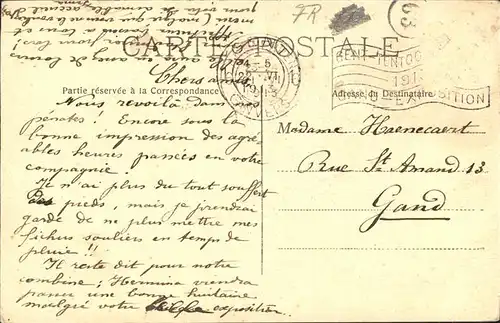 FR
63
CARTE POSTALE
GENT
22 VI
1913
ANVERS
GENT-TENTOO
191
GAND-EXPOSITION
Partie réservée à la Correspondance
Adresse du Destinataire
Chers amis,
Nous revoilà dans nos
pénates! Encore sous la
bonne impression des agré-
ables heures passées en votre
compagnie!
Il n'ai plus du tout souffert
des pieds, mais je prendrai
garde de ne plus mettre mes
fichus souliers en temps de
pluie!!
Il reste dit pour notre
combine; Hermina viendra
passer une bonne huitaine
malgré votre exposition.
Madame Haenecaert
Rue St Amand 13
Gand